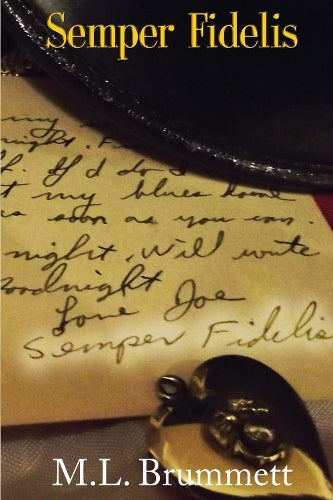 Semper Fidelis
my
night.
ff. I'd do
t my blues home
as soon as you can.
night. Will write
Goodnight
Love Joe
Semper Fidelis
M.L. Brummett